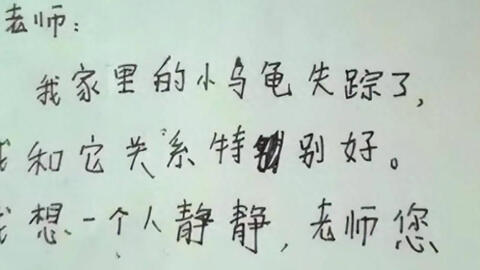 老师：
我家里的小乌龟失踪了，
我和它关系特别好。
我想一个人静静，老师您